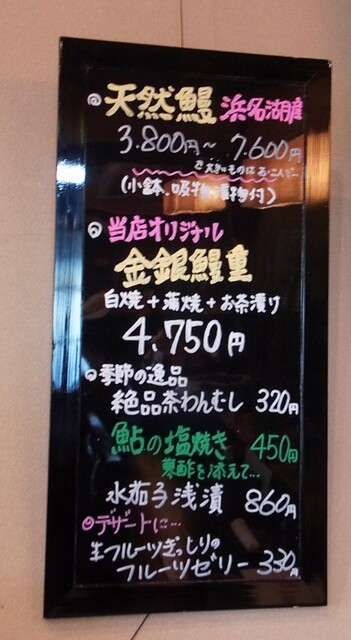 ◎天然鰻 浜名湖産
3.800円～7.600円
(小鉢、吸物、漬物付)
◎当店オリジナル
金銀鰻重
白焼+蒲焼+お茶漬け
4.750円
◎季節の逸品
絶品茶わんむし 320円
鮎の塩焼き 450円
蓼酢を添えて…
水茄子浅漬 860円
◎デザートに…
生フルーツぎっしりの
フルーツゼリー 330円